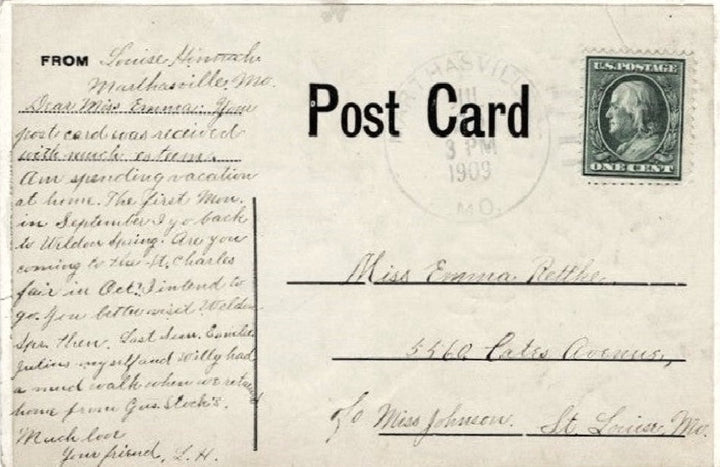 FROM Louise
Marthasville, Mo.
Dear Miss Emma: Your
post card was received
with much esteem.
Am spending vacation
at home. The first Mon.
in September I go back
to Weldon Spring. Are you
coming to the St. Charles
fair in Oct? I intend to
go. You better visit Weldon
Spr. then. Last Sun. Emilie
Julius myself and Willy had
a mud walk when we return
home from Gus. Stock's.
Much love
Your friend, L. H.
Post Card
MARTHASVILLE
3 PM
1909
MO.
U.S. POSTAGE
ONE CENT
Miss Emma
Cates Avenue,
c/o Miss Johnson. St. Louis, Mo.